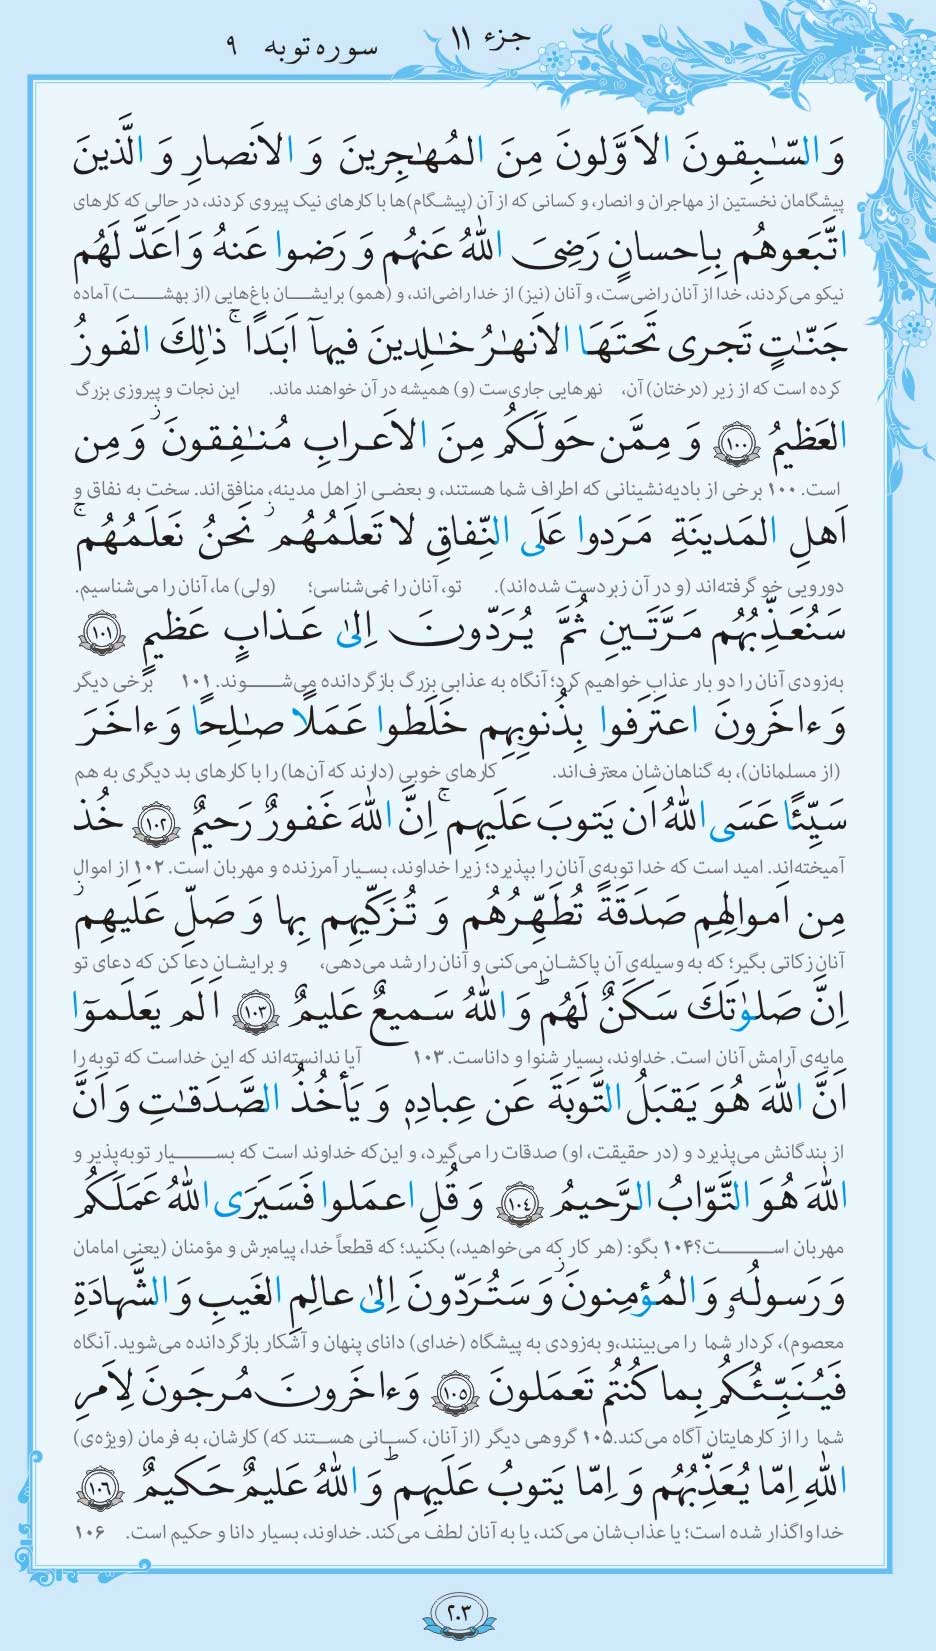 جزء ۱۱
سوره توبه ۹
وَ السّٰبِقونَ الاَوَّلونَ مِنَ المُهٰجِرینَ وَ الاَنصارِ وَ الَّذینَ
پیشگامان نخستین از مهاجران و انصار، و کسانی که از آن (پیشگام)ها با کارهای نیک پیروی کردند، در حالی که کارهای
اتَّبَعوهُم بِاِحسانٍ رَضِیَ اللّٰهُ عَنهُم وَ رَضوا عَنهُ وَ اَعَدَّ لَهُم
نیکو می‌کردند، خدا از آنان راضی‌ست، و آنان (نیز) از خدا راضی‌اند، و (همو) برایشان باغ‌هایی (از بهشت) آماده
جَنّٰتٍ تَجری تَحتَهَا الاَنهٰرُ خٰلِدینَ فیهآ اَبَدًا ۚ ذٰلِكَ الفَوزُ
کرده است که از زیر (درختان) آن، نهرهایی جاری‌ست (و) همیشه در آن خواهند ماند. این نجات و پیروزی بزرگ
العَظیمُ ۱۰۰ وَ مِمَّن حَولَكُم مِنَ الاَعرابِ مُنٰفِقونَ ز وَ مِن
است. ۱۰۰ برخی از بادیه‌نشینانی که اطراف شما هستند، و بعضی از اهل مدینه، منافق‌اند. سخت به نفاق و
اَهلِ المَدینَةِ مَرَدوا عَلَی النِّفاقِ لا تَعلَمُهُم ز نَحنُ نَعلَمُهُم ۚ
دورویی خو گرفته‌اند (و در آن زبردست شده‌اند). تو، آنان را نمی‌شناسی؛ (ولی) ما، آنان را می‌شناسیم.
سَنُعَذِّبُهُم مَرَّتَینِ ثُمَّ یُرَدّونَ اِلیٰ عَذابٍ عَظیمٍ ۱۰۱
به‌زودی آنان را دو بار عذاب خواهیم کرد؛ آنگاه به عذابی بزرگ بازگردانده می‌شوند. ۱۰۱ برخی دیگر
وَ ءاخَرونَ اعتَرَفوا بِذُنوبِهِم خَلَطوا عَمَلًا صٰلِحًا وَ ءاخَرَ
(از مسلمانان)، به گناهان‌شان معترف‌اند. کارهای خوبی (دارند که آن‌ها) را با کارهای بد دیگری به هم
سَیِّئًا عَسَی اللّٰهُ اَن یَتوبَ عَلَیهِم ۚ اِنَّ اللّٰهَ غَفورٌ رَحیمٌ ۱۰۲ خُذ
آمیخته‌اند. امید است که خدا توبه‌ی آنان را بپذیرد؛ زیرا خداوند، بسیار آمرزنده و مهربان است. ۱۰۲ از اموال
مِن اَموالِهِم صَدَقَةً تُطَهِّرُهُم وَ تُزَكّیهِم بِها وَ صَلِّ عَلَیهِم ز
آنان زکاتی بگیر؛ که به وسیله‌ی آن پاکشان می‌کنی و آنان را رشد می‌دهی، و برایشان دعا کن که دعای تو
اِنَّ صَلوٰتَكَ سَكَنٌ لَهُم ۗ وَ اللّٰهُ سَمیعٌ عَلیمٌ ۱۰۳ اَلَم یَعلَموٓا
مایه‌ی آرامش آنان است. خداوند، بسیار شنوا و داناست. ۱۰۳ آیا ندانسته‌اند که این خداست که توبه را
اَنَّ اللّٰهَ هُوَ یَقبَلُ التَّوبَةَ عَن عِبادِهٖ وَ یَأخُذُ الصَّدَقٰتِ وَ اَنَّ
از بندگانش می‌پذیرد و (در حقیقت، او) صدقات را می‌گیرد، و این‌که خداوند است که بسیار توبه‌پذیر و
اللّٰهَ هُوَ التَّوّابُ الرَّحیمُ ۱۰۴ وَ قُلِ اعمَلوا فَسَیَرَی اللّٰهُ عَمَلَكُم
مهربان است؟ ۱۰۴ بگو: (هر کار که می‌خواهید،) بکنید؛ که قطعاً خدا، پیامبرش و مؤمنان (یعنی امامان
وَ رَسولُهٗ وَ المُؤمِنونَ ز وَ سَتُرَدّونَ اِلیٰ عالِمِ الغَیبِ وَ الشَّهادَةِ
معصوم)، کردار شما را می‌بینند، و به‌زودی به پیشگاه (خدای) دانای پنهان و آشکار بازگردانده می‌شوید. آنگاه
فَیُنَبِّئُكُم بِما كُنتُم تَعمَلونَ ۱۰۵ وَ ءاخَرونَ مُرجَونَ لِاَمرِ
شما را از کارهایتان آگاه می‌کند. ۱۰۵ گروهی دیگر (از آنان، کسانی هستند که) کارشان، به فرمان (ویژه‌ی)
اللّٰهِ اِمّا یُعَذِّبُهُم وَ اِمّا یَتوبُ عَلَیهِم ۗ وَ اللّٰهُ عَلیمٌ حَكیمٌ ۱۰۶
خدا واگذار شده است؛ یا عذاب‌شان می‌کند، یا به آنان لطف می‌کند. خداوند، بسیار دانا و حکیم است. ۱۰۶
۲۰۳